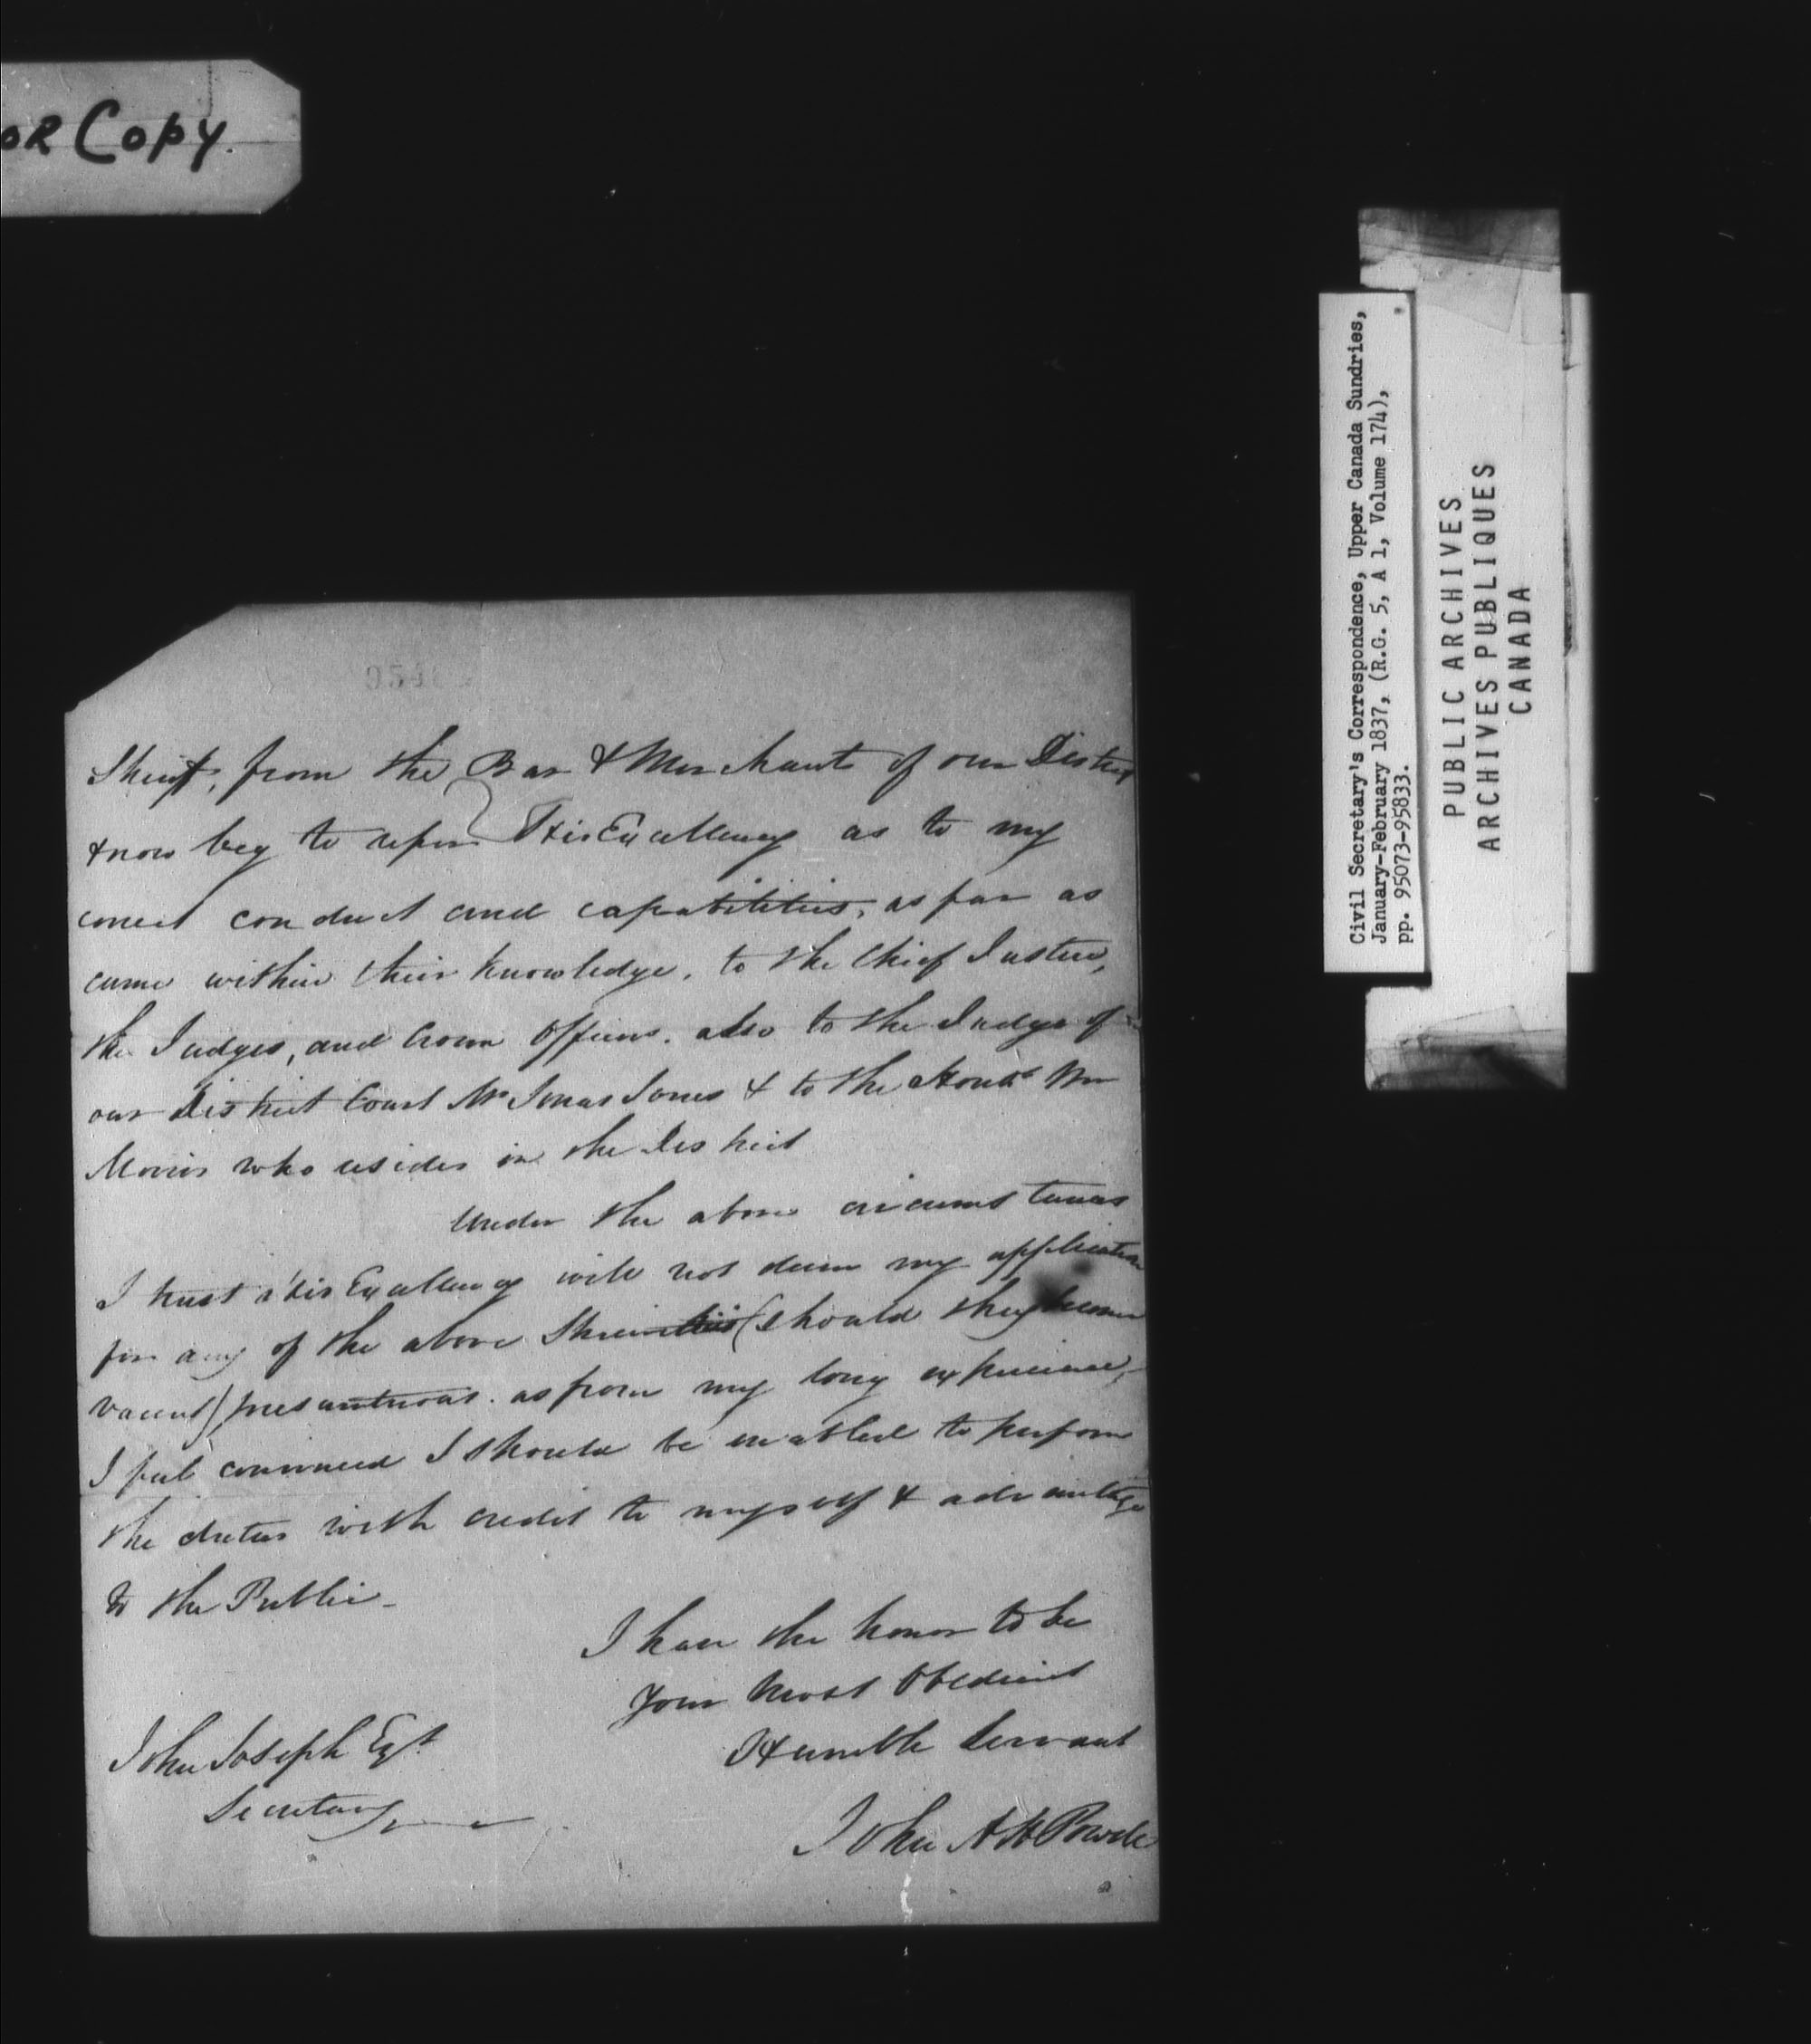 OR Copy.
Sheriff, from the Bar & Merchants of our District
& now beg to refer His Excellency as to my
correct conduct and capabilities, as far as
came within their knowledge, to the Chief Justice,
the Judges, and Crown Officers. also to the Judge of
our District Court Mr Jonas Jones & to the Honble Wm
Morris who resides in the District
Under the above circumstances
I trust His Excellency will not deem my application
for any of the above (should they become
vacant) presumptuous. as from my long experience,
I feel convinced I should be enabled to perform
the duties with credit to myself & advantage
to the Public.
I have the honor to be
Your Most Obedient
Humble Servant
John Joseph Esqr
Secretary
John A H Powell
Civil Secretary's Correspondence, Upper Canada Sundries,
January-February 1837, (R.G. 5, A 1, Volume 174),
pp. 95073-95833.
PUBLIC ARCHIVES
ARCHIVES PUBLIQUES
CANADA